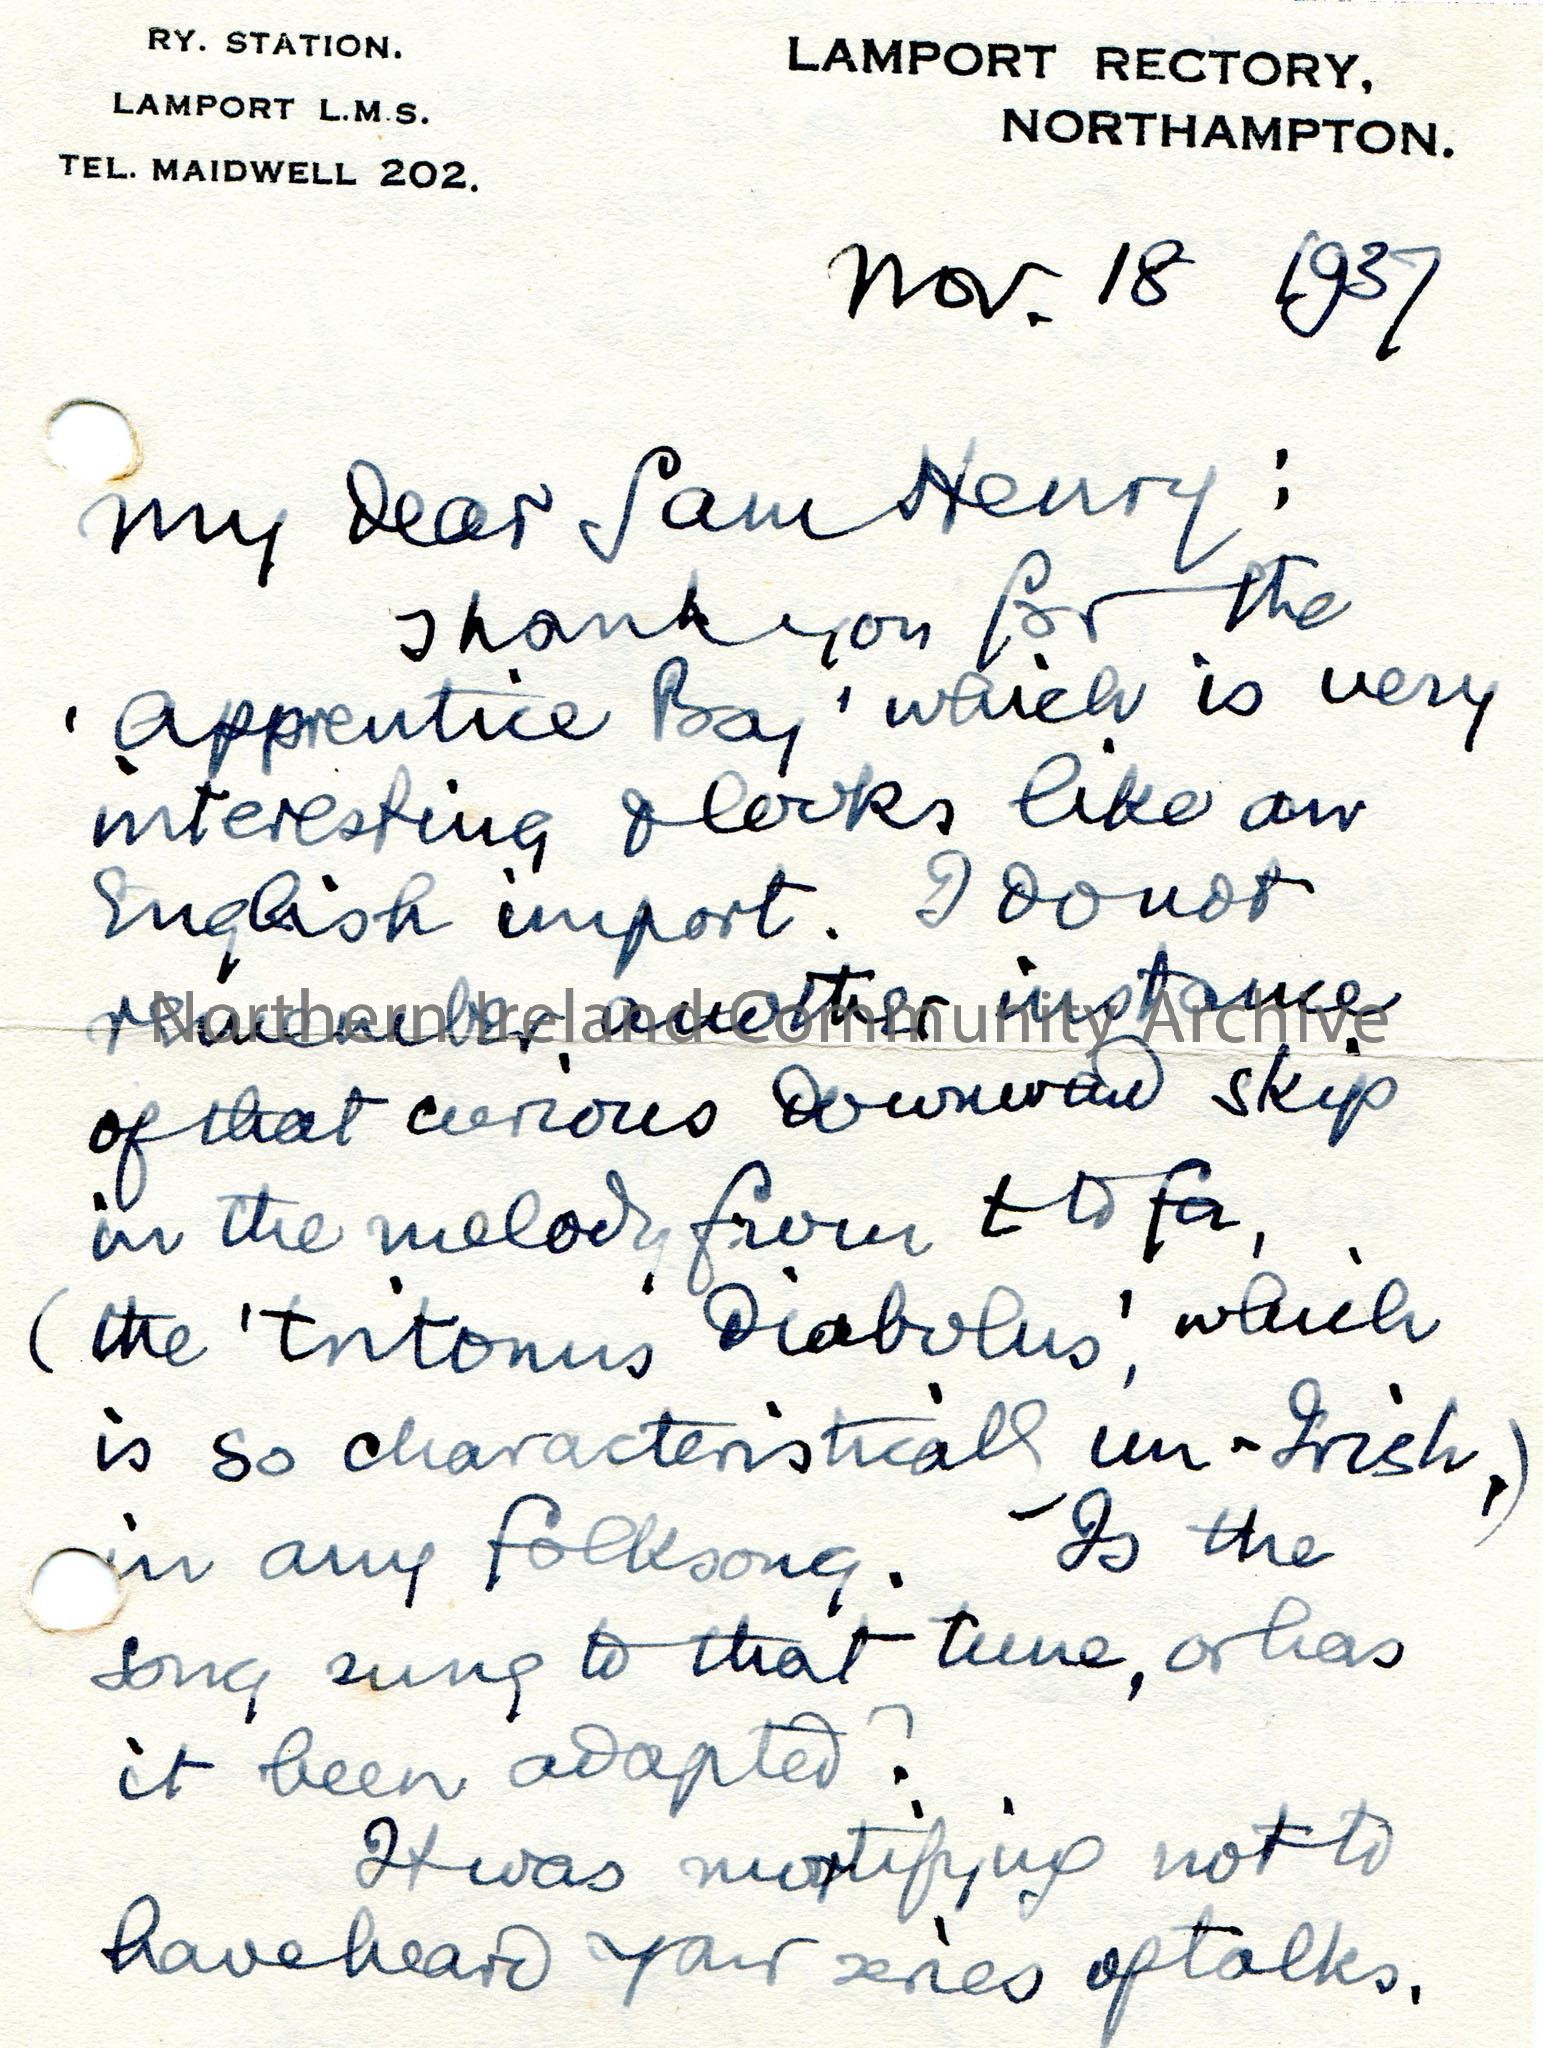 RY. STATION.
LAMPORT L.M.S.
TEL. MAIDWELL 202.
LAMPORT RECTORY,
NORTHAMPTON.
Nov. 18 1937
My dear Sam Henry:
Thank you for the
'Apprentice Boy' which is very
interesting & looks like an
English import. I do not
remember another instance
Northern Ireland Community Archive
of that curious downward skip
in the melody from t to fa,
(the 'tritonus diabolus', which
is so characteristically un-Irish,)
in any folksong. – Is the
song sung to that tune, or has
it been adapted?
It was mortifying not to
have heard your series of talks.